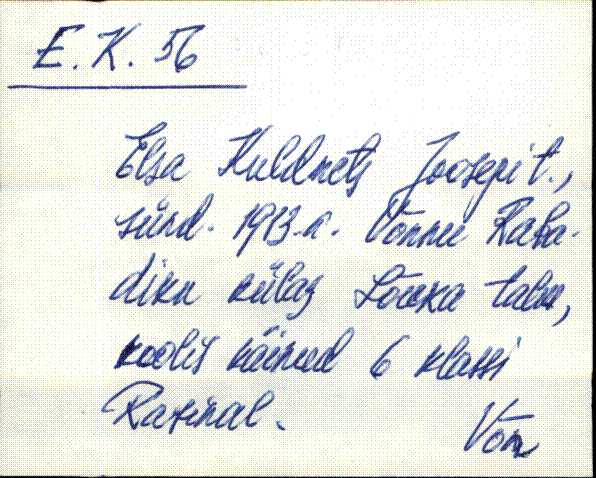 E. K. 56
Elsa Kuldmets Joosepi t.,
sünd. 1913. a. Võnnu Raba-
diku külas Lõuka talu,
koolis käinud 6 klassi
Rasinal.
Võn